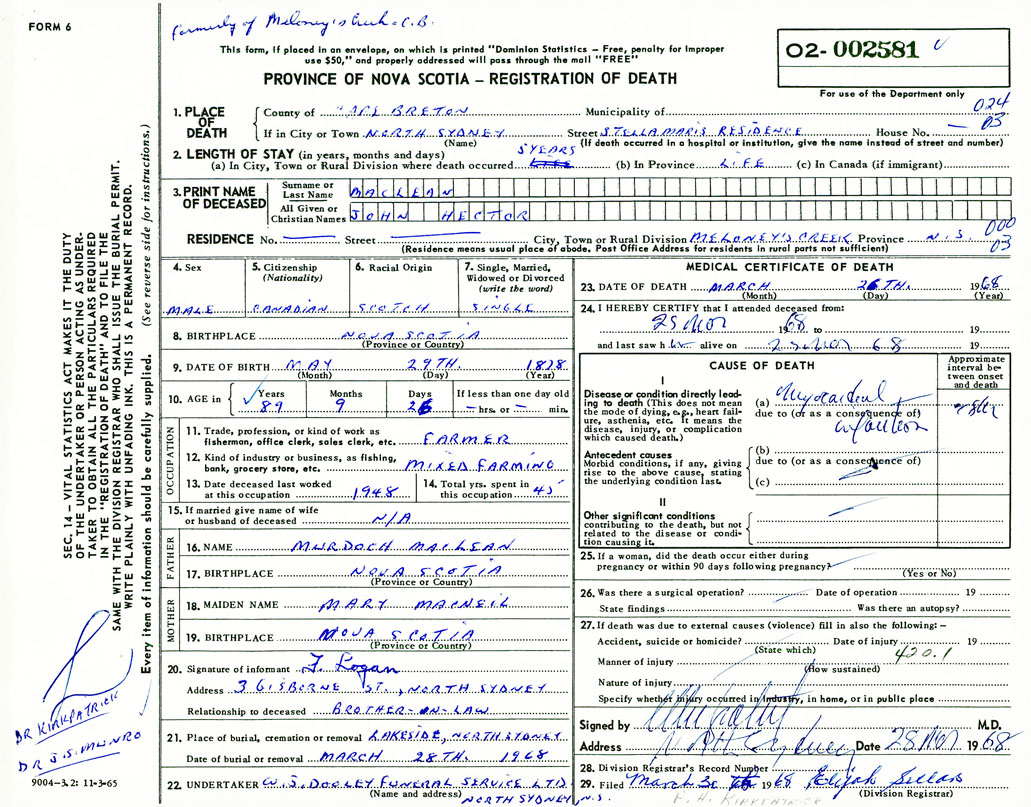 FORM 6
formerly of Meloney's Creek C.B.
This form, if placed in an envelope, on which is printed "Dominion Statistics – Free, penalty for improper
use $50," and properly addressed will pass through the mail "FREE"
PROVINCE OF NOVA SCOTIA – REGISTRATION OF DEATH
02-002581
For use of the Department only
024
03
1. PLACE OF DEATH
County of CAPE BRETON Municipality of
If in City or Town NORTH SYDNEY Street STELLA MARIS RESIDENCE House No. —
(Name) (If death occurred in a hospital or institution, give the name instead of street and number)
2. LENGTH OF STAY (in years, months and days) 5 YEARS
(a) In City, Town or Rural Division where death occurred (b) In Province LIFE (c) In Canada (if immigrant)
3. PRINT NAME OF DECEASED
Surname or Last Name MACLEAN
All Given or Christian Names JOHN HECTOR
000
03
RESIDENCE No. — Street — City, Town or Rural Division MELONEY'S CREEK Province N.S.
(Residence means usual place of abode. Post Office Address for residents in rural parts not sufficient)
4. Sex
MALE
5. Citizenship (Nationality)
CANADIAN
6. Racial Origin
SCOTCH
7. Single, Married, Widowed or Divorced (write the word)
SINGLE
8. BIRTHPLACE NOVA SCOTIA
(Province or Country)
9. DATE OF BIRTH MAY 29TH. 1878
(Month) (Day) (Year)
10. AGE in Years Months Days If less than one day old
89 9 26 – hrs. or – min.
OCCUPATION
11. Trade, profession, or kind of work as
fisherman, office clerk, sales clerk, etc. FARMER
12. Kind of industry or business, as fishing,
bank, grocery store, etc. MIXED FARMING
13. Date deceased last worked at this occupation 1948
14. Total yrs. spent in this occupation 45
15. If married give name of wife
or husband of deceased N/A
FATHER
16. NAME MURDOCH MACLEAN
17. BIRTHPLACE NOVA SCOTIA
(Province or Country)
MOTHER
18. MAIDEN NAME MARY MACNEIL
19. BIRTHPLACE NOVA SCOTIA
(Province or Country)
20. Signature of informant F. Logan
Address 3 GISBORNE ST., NORTH SYDNEY
Relationship to deceased BROTHER-IN-LAW
21. Place of burial, cremation or removal LAKESIDE, NORTH SYDNEY
Date of burial or removal MARCH 28TH. 1968
22. UNDERTAKER W.J. DOOLEY FUNERAL SERVICE LTD.
(Name and address) NORTH SYDNEY, N.S.
MEDICAL CERTIFICATE OF DEATH
23. DATE OF DEATH MARCH 26TH. 1968
(Month) (Day) (Year)
24. I HEREBY CERTIFY that I attended deceased from:
25 Mar 1968 to 19
and last saw him alive on 25 Mar 68 19
CAUSE OF DEATH
Approximate interval between onset and death
I
Disease or condition directly leading to death (This does not mean the mode of dying, e.g., heart failure, asthenia, etc. It means the disease, injury, or complication which caused death.)
(a) Myocardial
due to (or as a consequence of)
infarction
Antecedent causes
Morbid conditions, if any, giving rise to the above cause, stating the underlying condition last.
(b)
due to (or as a consequence of)
(c)
II
Other significant conditions
contributing to the death, but not related to the disease or condition causing it.
25. If a woman, did the death occur either during
pregnancy or within 90 days following pregnancy?
(Yes or No)
26. Was there a surgical operation? Date of operation 19
State findings Was there an autopsy?
27. If death was due to external causes (violence) fill in also the following: –
Accident, suicide or homicide? Date of injury 19
(State which) 420.1
Manner of injury
(How sustained)
Nature of injury
Specify whether injury occurred in industry, in home, or in public place
Signed by M.D.
Address North Sydney Date 28 Mar 1968
28. Division Registrar's Record Number
29. Filed March 30 1968 Elijah Sellars
(Division Registrar)
F. H. KIRKPATRICK
SEC. 14 – VITAL STATISTICS ACT MAKES IT THE DUTY
OF THE UNDERTAKER OR PERSON ACTING AS UNDER-
TAKER TO OBTAIN ALL THE PARTICULARS REQUIRED
IN THE "REGISTRATION OF DEATH" AND TO FILE THE
SAME WITH THE DIVISION REGISTRAR WHO SHALL ISSUE THE BURIAL PERMIT.
WRITE PLAINLY WITH UNFADING INK. THIS IS A PERMANENT RECORD.
Every item of information should be carefully supplied. (See reverse side for instructions.)
DR KIRKPATRICK
DR S.S. MUNRO
9004-3.2: 11-3-65